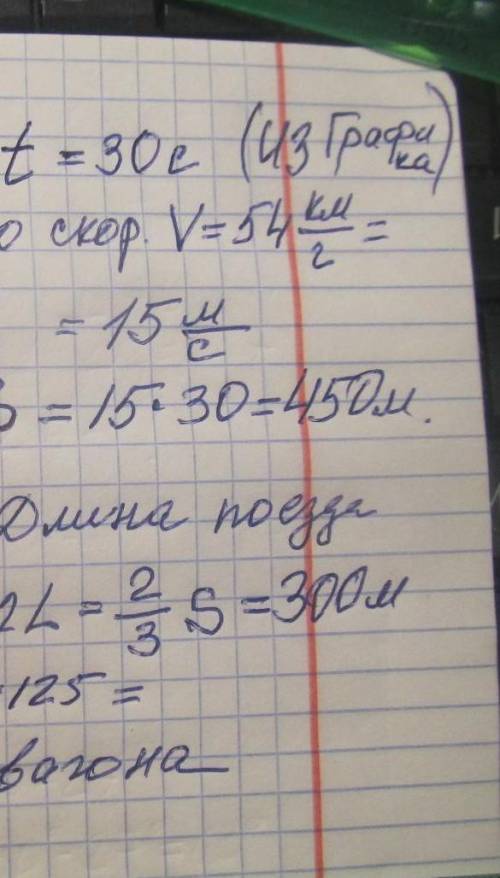 t = 30 с (из графика)
о скор. V = 54 км/г =
= 15 м/с
S = 15 · 30 = 450 м.
Длина поезда
2L = 2/3 S = 300 м
125 =
вагона